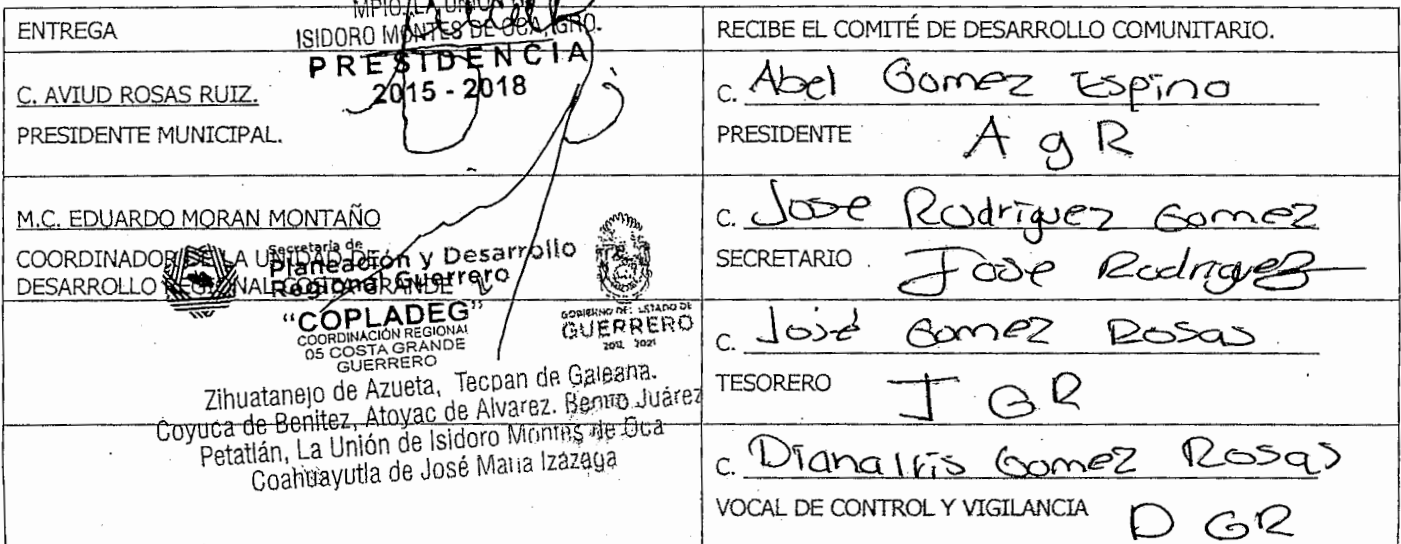 ENTREGA
MPIO. LA UNION DE
ISIDORO MONTES DE OCA, GRO.
PRESIDENCIA
2015 - 2018
C. AVIUD ROSAS RUIZ.
PRESIDENTE MUNICIPAL.
M.C. EDUARDO MORAN MONTAÑO
COORDINADOR DE LA UNIDAD DE
DESARROLLO REGIONAL COSTA GRANDE
Secretaría de
Planeación y Desarrollo
Regional Guerrero
“COPLADEG”
COORDINACIÓN REGIONAL
05 COSTA GRANDE
GUERRERO
GOBIERNO DEL ESTADO DE
GUERRERO
2021
Zihuatanejo de Azueta, Tecpan de Galeana.
Coyuca de Benitez, Atoyac de Alvarez. Benito Juárez
Petatlán, La Unión de Isidoro Montes de Oca
Coahuayutla de José Maria Izazaga
RECIBE EL COMITÉ DE DESARROLLO COMUNITARIO.
C. Abel Gomez Espino
PRESIDENTE A g R
C. Jose Rodriguez Gomez
SECRETARIO Jose Rodriguez
C. José Gomez Rosas
TESORERO J G R
C. Diana Iris Gomez Rosas
VOCAL DE CONTROL Y VIGILANCIA D GR